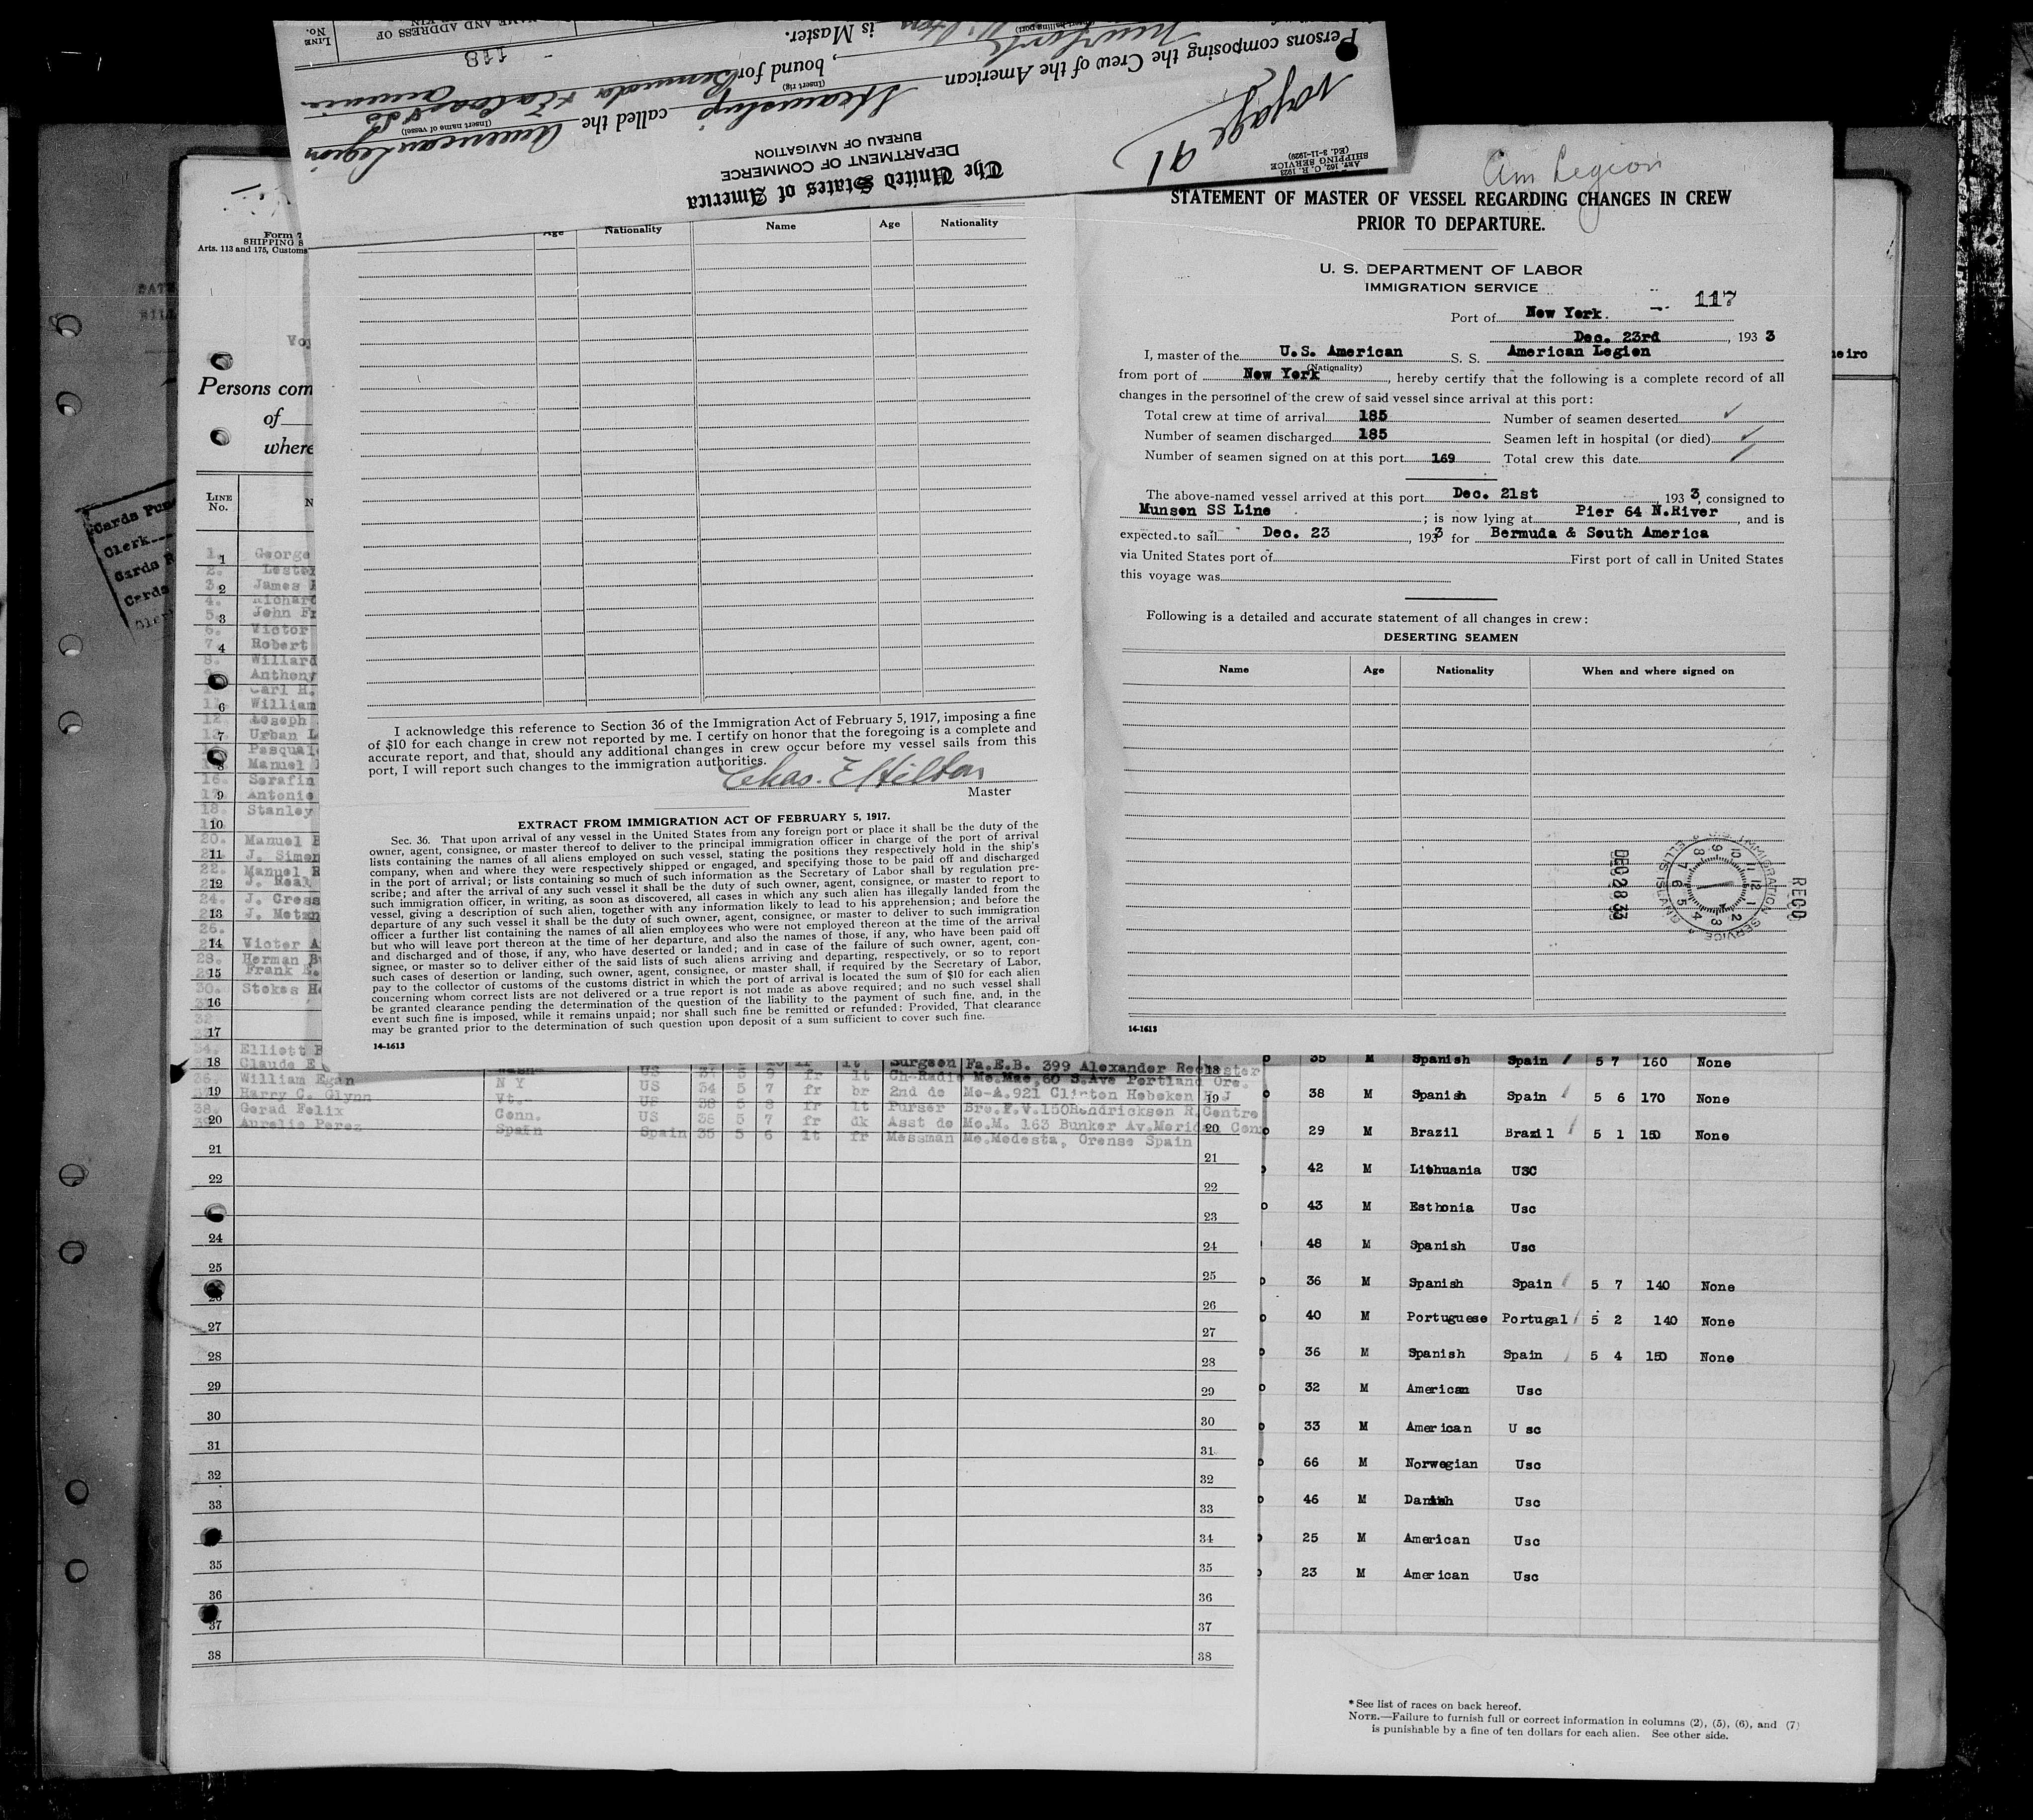 LINE No.
NAME AND ADDRESS OF
118
Persons composing the Crew of the American Steamship called the American Legion
(Insert rig)
(Insert name of vessel)
is Master.
, bound for Bermuda
The United States of America
DEPARTMENT OF COMMERCE
BUREAU OF NAVIGATION
Voyage 91
ART. 162, C. R. 1923
SHIPPING SERVICE
(Ed. 3-11-1929)
Form 7
SHIPPING S
Arts. 113 and 175, Customs
Persons com
of
where
LINE No.
N
Cards
Clerk
Cards R
Cards
George
Lester
James
Richard
John Fr
Victor
Robert
Willard
Anthony
Carl H.
William
Joseph
Urban L
Pasqual
Manuel
Serafin
Antonio
Stanley
Manuel
J. Simon
Manuel R
J. Real
J. Cress
J. Metan
Victor A
Herman
Frank
Stokes
Age Nationality Name Age Nationality
I acknowledge this reference to Section 36 of the Immigration Act of February 5, 1917, imposing a fine
of $10 for each change in crew not reported by me. I certify on honor that the foregoing is a complete and
accurate report, and that, should any additional changes in crew occur before my vessel sails from this
port, I will report such changes to the immigration authorities.
Chas. E Hilton
Master
EXTRACT FROM IMMIGRATION ACT OF FEBRUARY 5, 1917.
Sec. 36. That upon arrival of any vessel in the United States from any foreign port or place it shall be the duty of the
owner, agent, consignee, or master thereof to deliver to the principal immigration officer in charge of the port of arrival
lists containing the names of all aliens employed on such vessel, stating the positions they respectively hold in the ship's
company, when and where they were respectively shipped or engaged, and specifying those to be paid off and discharged
in the port of arrival; or lists containing so much of such information as the Secretary of Labor shall by regulation pre-
scribe; and after the arrival of any such vessel it shall be the duty of such owner, agent, consignee, or master to report to
such immigration officer, in writing, as soon as discovered, all cases in which any such alien has illegally landed from the
vessel, giving a description of such alien, together with any information likely to lead to his apprehension; and before the
departure of any such vessel it shall be the duty of such owner, agent, consignee, or master to deliver to such immigration
officer a further list containing the names of all alien employees who were not employed thereon at the time of the arrival
but who will leave port thereon at the time of her departure, and also the names of those, if any, who have been paid off
and discharged and of those, if any, who have deserted or landed; and in case of the failure of such owner, agent, con-
signee, or master so to deliver either of the said lists of such aliens arriving and departing, respectively, or so to report
such cases of desertion or landing, such owner, agent, consignee, or master shall, if required by the Secretary of Labor,
pay to the collector of customs of the customs district in which the port of arrival is located the sum of $10 for each alien
concerning whom correct lists are not delivered or a true report is not made as above required; and no such vessel shall
be granted clearance pending the determination of the question of the liability to the payment of such fine, and, in the
event such fine is imposed, while it remains unpaid; nor shall such fine be remitted or refunded: Provided, That clearance
may be granted prior to the determination of such question upon deposit of a sum sufficient to cover such fine.
14-1613
Am Legion
STATEMENT OF MASTER OF VESSEL REGARDING CHANGES IN CREW
PRIOR TO DEPARTURE.
U. S. DEPARTMENT OF LABOR
IMMIGRATION SERVICE
117
Port of New York.
Dec. 23rd, 193 3
I, master of the U.S. American S. S. American Legion
(Nationality)
from port of New York, hereby certify that the following is a complete record of all
changes in the personnel of the crew of said vessel since arrival at this port:
Total crew at time of arrival 185 Number of seamen deserted ✓
Number of seamen discharged 185 Seamen left in hospital (or died) ✓
Number of seamen signed on at this port 169 Total crew this date ✓
The above-named vessel arrived at this port Dec. 21st, 193 3, consigned to
Munson SS Line; is now lying at Pier 64 N.River, and is
expected to sail Dec. 23, 193 3 for Bermuda & South America
via United States port of First port of call in United States
this voyage was
Following is a detailed and accurate statement of all changes in crew:
DESERTING SEAMEN
Name Age Nationality When and where signed on
DEC 28 33
U.S. IMMIGRATION SERVICE ELLIS ISLAND
RECD
14-1613
eiro
Elliott
Claude E Surgeon Fa.E.B. 399 Alexander Rochester
William Egan Wash US Ch-Radio Mo.Mae,60 S.Ave Portland Ore.
Harry C. Glynn N Y US 34 5 7 fr br 2nd do Mo-A.921 Clinton Hoboken N J
Gerad Felix Vt. US 38 5 8 fr lt Purser Bro.F.V.150Hendrickson R.Centre
Conn. US 38 5 7 fr dk Asst do Mo.M. 163 Bunker Av.Meriden Con
Aurelio Perez Spain Spain 35 5 6 lt fr Messman Mo.Modesta, Orense Spain
35 M Spanish Spain 5 7 160 None
38 M Spanish Spain 5 6 170 None
29 M Brazil Brazil 5 1 150 None
42 M Lithuania USC
43 M Esthonia Usc
48 M Spanish Usc
36 M Spanish Spain 5 7 140 None
40 M Portuguese Portugal 5 2 140 None
36 M Spanish Spain 5 4 150 None
32 M American Usc
33 M American U sc
66 M Norwegian Usc
46 M Danish Usc
25 M American Usc
23 M American Usc
* See list of races on back hereof.
NOTE.—Failure to furnish full or correct information in columns (2), (5), (6), and (7)
is punishable by a fine of ten dollars for each alien. See other side.